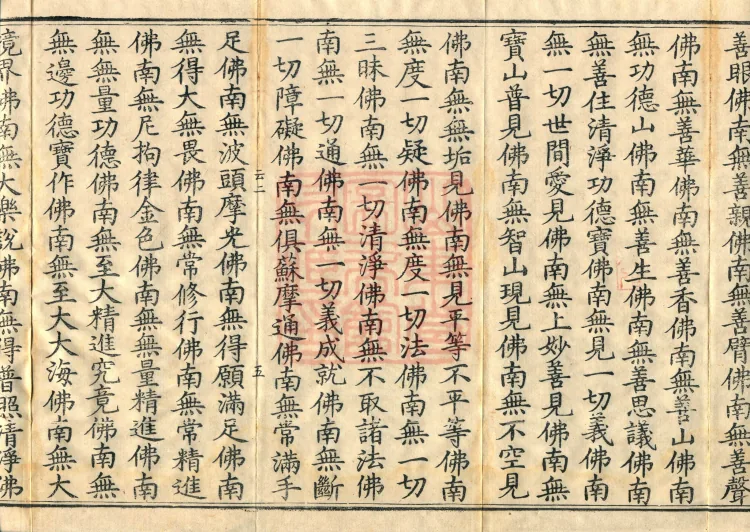 善眼佛南無善親佛南無善臂佛南無善聲
佛南無善華佛南無善香佛南無善山佛南
無功德山佛南無善生佛南無善思議佛南
無善住清淨功德寶佛南無見一切義佛南
無一切世間愛見佛南無上妙善見佛南無
寶山普見佛南無智山現見佛南無不空見
佛南無無垢見佛南無見平等不平等佛南
無度一切疑佛南無度一切法佛南無一切
三昧佛南無一切清淨佛南無不取諸法佛
南無一切通佛南無一切義成就佛南無斷
一切障礙佛南無俱蘇摩通佛南無常滿手
云二 五
足佛南無波頭摩光佛南無得願滿足佛南
無得大無畏佛南無常修行佛南無常精進
佛南無尼拘律金色佛南無無量精進佛南
無無量功德佛南無至大精進究竟佛南無
無邊功德寶作佛南無至大大海佛南無大
境界佛南無大樂說佛南無得普照清淨佛